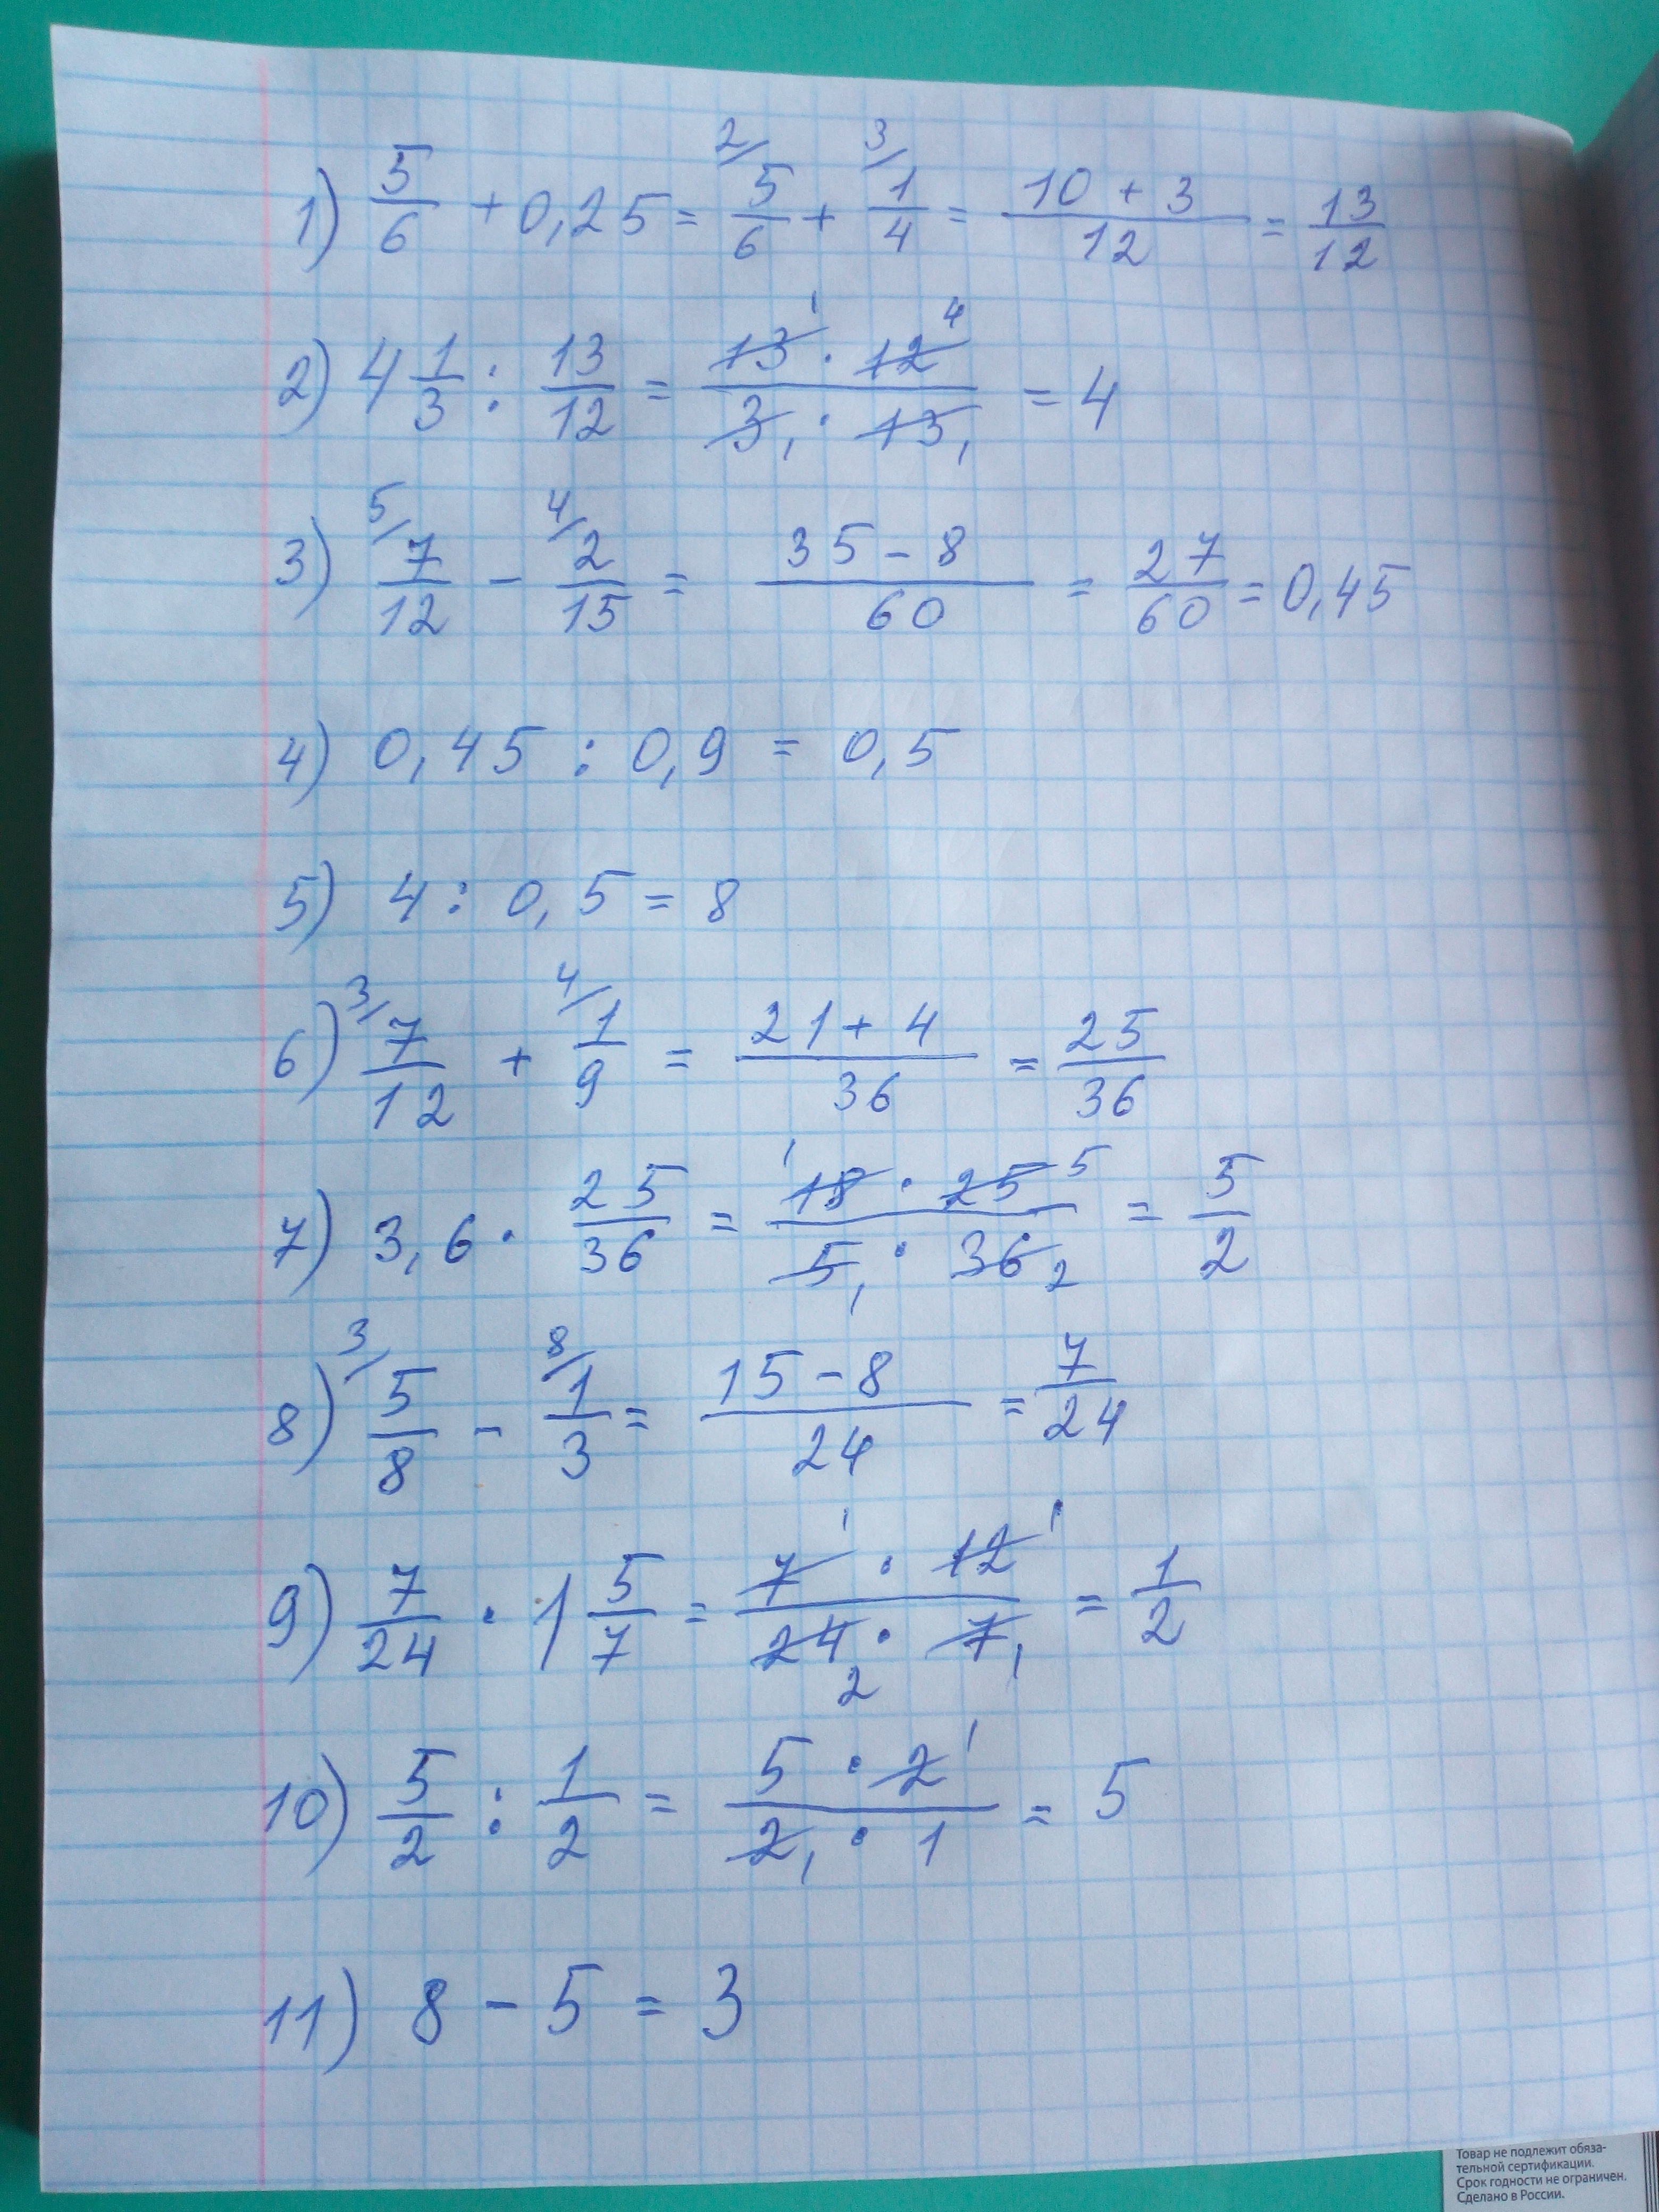 1) 5/6 + 0,25 = 2/ 5/6 + 3/ 1/4 = (10 + 3)/12 = 13/12
2) 4 1/3 : 13/12 = (13 1 · 12 4)/(3 1 · 13 1) = 4
3) 5/ 7/12 - 4/ 2/15 = (35 - 8)/60 = 27/60 = 0,45
4) 0,45 : 0,9 = 0,5
5) 4 : 0,5 = 8
6) 3/ 7/12 + 4/ 1/9 = (21 + 4)/36 = 25/36
7) 3,6 · 25/36 = (1 18 · 25 5)/(5 1 · 36 2) = 5/2
8) 3/ 5/8 - 8/ 1/3 = (15 - 8)/24 = 7/24
9) 7/24 · 1 5/7 = (7 1 · 12 1)/(24 2 · 7 1) = 1/2
10) 5/2 : 1/2 = (5 · 2 1)/(2 1 · 1) = 5
11) 8 - 5 = 3
Товар не подлежит обяза-
тельной сертификации.
Срок годности не ограничен.
Сделано в России.